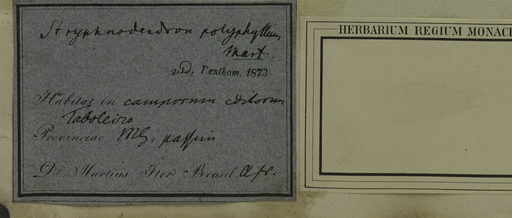 Stryphnodendron polyphyllum
Mart.
vid. Bentham. 1873
Habitat in camporum editorum
Taboleiro
Provinciae MG, passim
Dr. Martius Iter Brasil. Apr.
HERBARIUM REGIUM MONAC